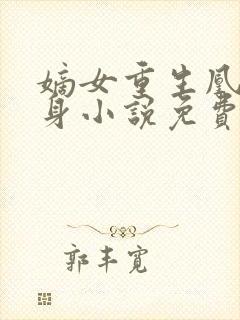 嫡女重生凰
身小說免費
郭丰寬